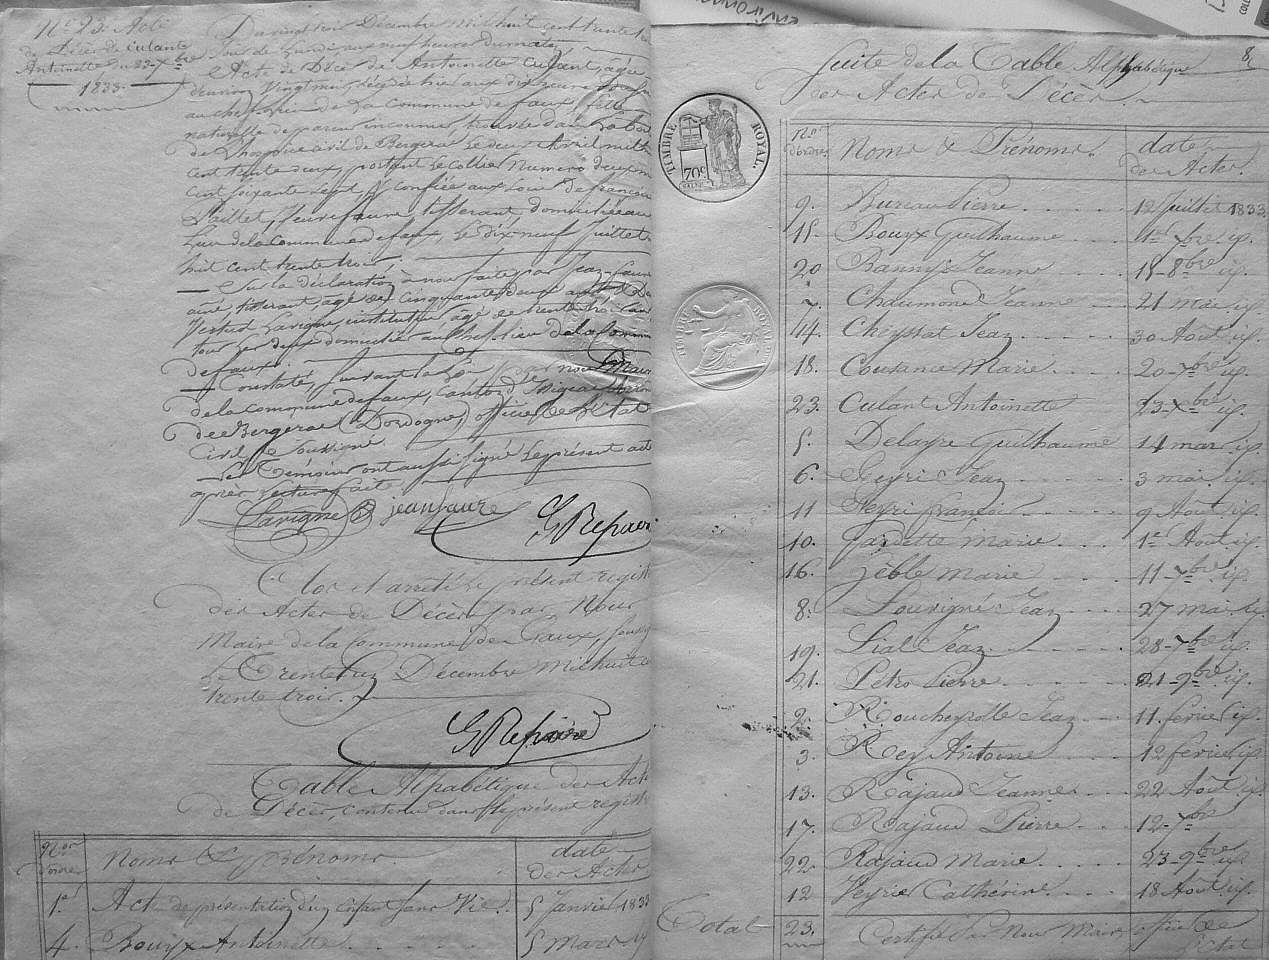 N° 23. Acte
de Décès de Culant
Antoinette du 23 Xbre
1833.
Du vingt trois Décembre mil huit cent trente tr
jour de Lundi aux neuf heures du matin
Acte de Décès de Antoinette Culant, agée
de environ Vingt mois, décédée hier aux dix heures
au chef lieu de la Commune de faux, fille
naturelle de parens inconnus, trouvée dans la boite
de L'hospice civil de Bergerac le deux Avril mil h
cent trente deux, portant le Collier Numero deux m
cent soixante sept, et confiée aux soins de françois
Veuve faure, tisserant, domiciliée au
lieu de la Commune de faux, le dix neuf juillet
huit cent trente trois.
Sur la déclaration à nous faite par Jean faure
ainé, tisserant agé de Cinquante deux ans
Lavigne, instituteur, agé de trente trois ans
tous les deux domiciliés au chef lieu de la Commun
de faux.
Constaté, suivant la Loi par nous Maire
de la commune de faux, Canton d'Issigeac
de Bergerac (Dordogne) officier de l'état
Civil, Soussigné
Les Témoins ont aussi signé le présent acte
après lecture faite
Lavigne jean faure
G Repaire
Clos et arrêté le présent regist
des Actes de Décès par Nous
Maire de la Commune de Faux, souss
le Trente un Décembre mil huit c
trente trois.
G Repaire
Table Alphabétique des Acte
de Décès, contenu dans le présent regist
Nos d'ordres
Noms & prénoms.
date des Actes
1er Acte de présentation d'un Enfant sans Vie. 5 Janvier 1833
4. Bouyx Antoinette 5 Mars
8
Suite de la Table Alphabétique
des Actes de Décès.
TIMBRE ROYAL
70c
TIMBRE ROYAL
Nos d'ordres
Noms & Prénoms.
date des Actes.
9. Buneau Pierre 12 Juillet 1833
15. Bouyx Guilhaume 1er 7bre id.
20 Banny Jeanne 15 8bre id.
7. Chaumond Jeanne 21 mai id.
14. Cheyssat Jean 30 Août id.
18. Coutance Marie 20 7bre id.
23. Culant Antoinette 23 Xbre id.
5. Delayre Guilhaume 14 mars id.
6. Geyri Jean 3 mai id.
11 Feyri françois 9 Août id.
10. Gardette marie 1er Août id.
16. Gèble marie 11 7bre id.
8. Louvigné Jean 27 mai id.
19. Lial Jean 28 7bre id.
21. Petro Pierre 21 9bre id.
2. Roucheyrolle Jean 11 fevrier id.
3. Rey Antoine 12 fevrier id.
13. Rajaud Jeanne 22 Août id.
17. Rajaud Pierre 12 7bre
22. Rajaud Marie 23 9bre id.
12 Veyrie Cathérine 18 Août id.
Total 23. Certifié par Nous Maire, officier de
l'état